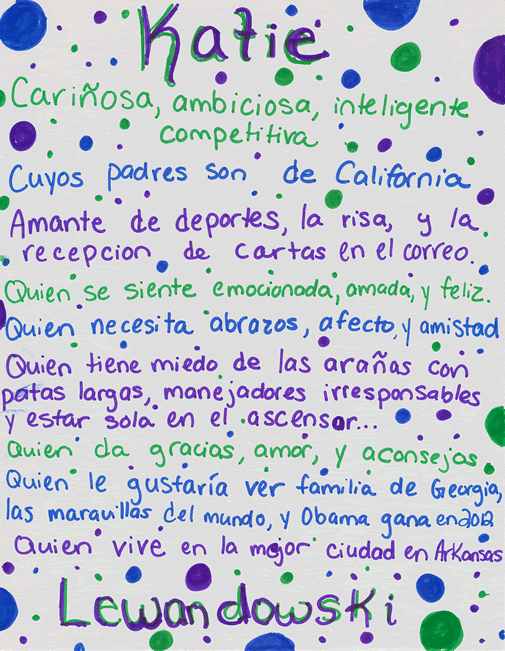 Katie
Cariñosa, ambiciosa, inteligente
competitiva
Cuyos padres son de California
Amante de deportes, la risa, y la
recepcion de cartas en el correo.
Quien se siente emocionada, amada, y feliz.
Quien necesita abrazos, afecto, y amistad
Quien tiene miedo de las arañas con
patas largas, manejadores irresponsables
y estar sola en el ascensor...
Quien da gracias, amor, y aconsejos
Quien le gustaría ver familia de Georgia,
las maravillas del mundo, y Obama gana en 2012
Quien vive en la mejor ciudad en Arkansas
Lewandowski